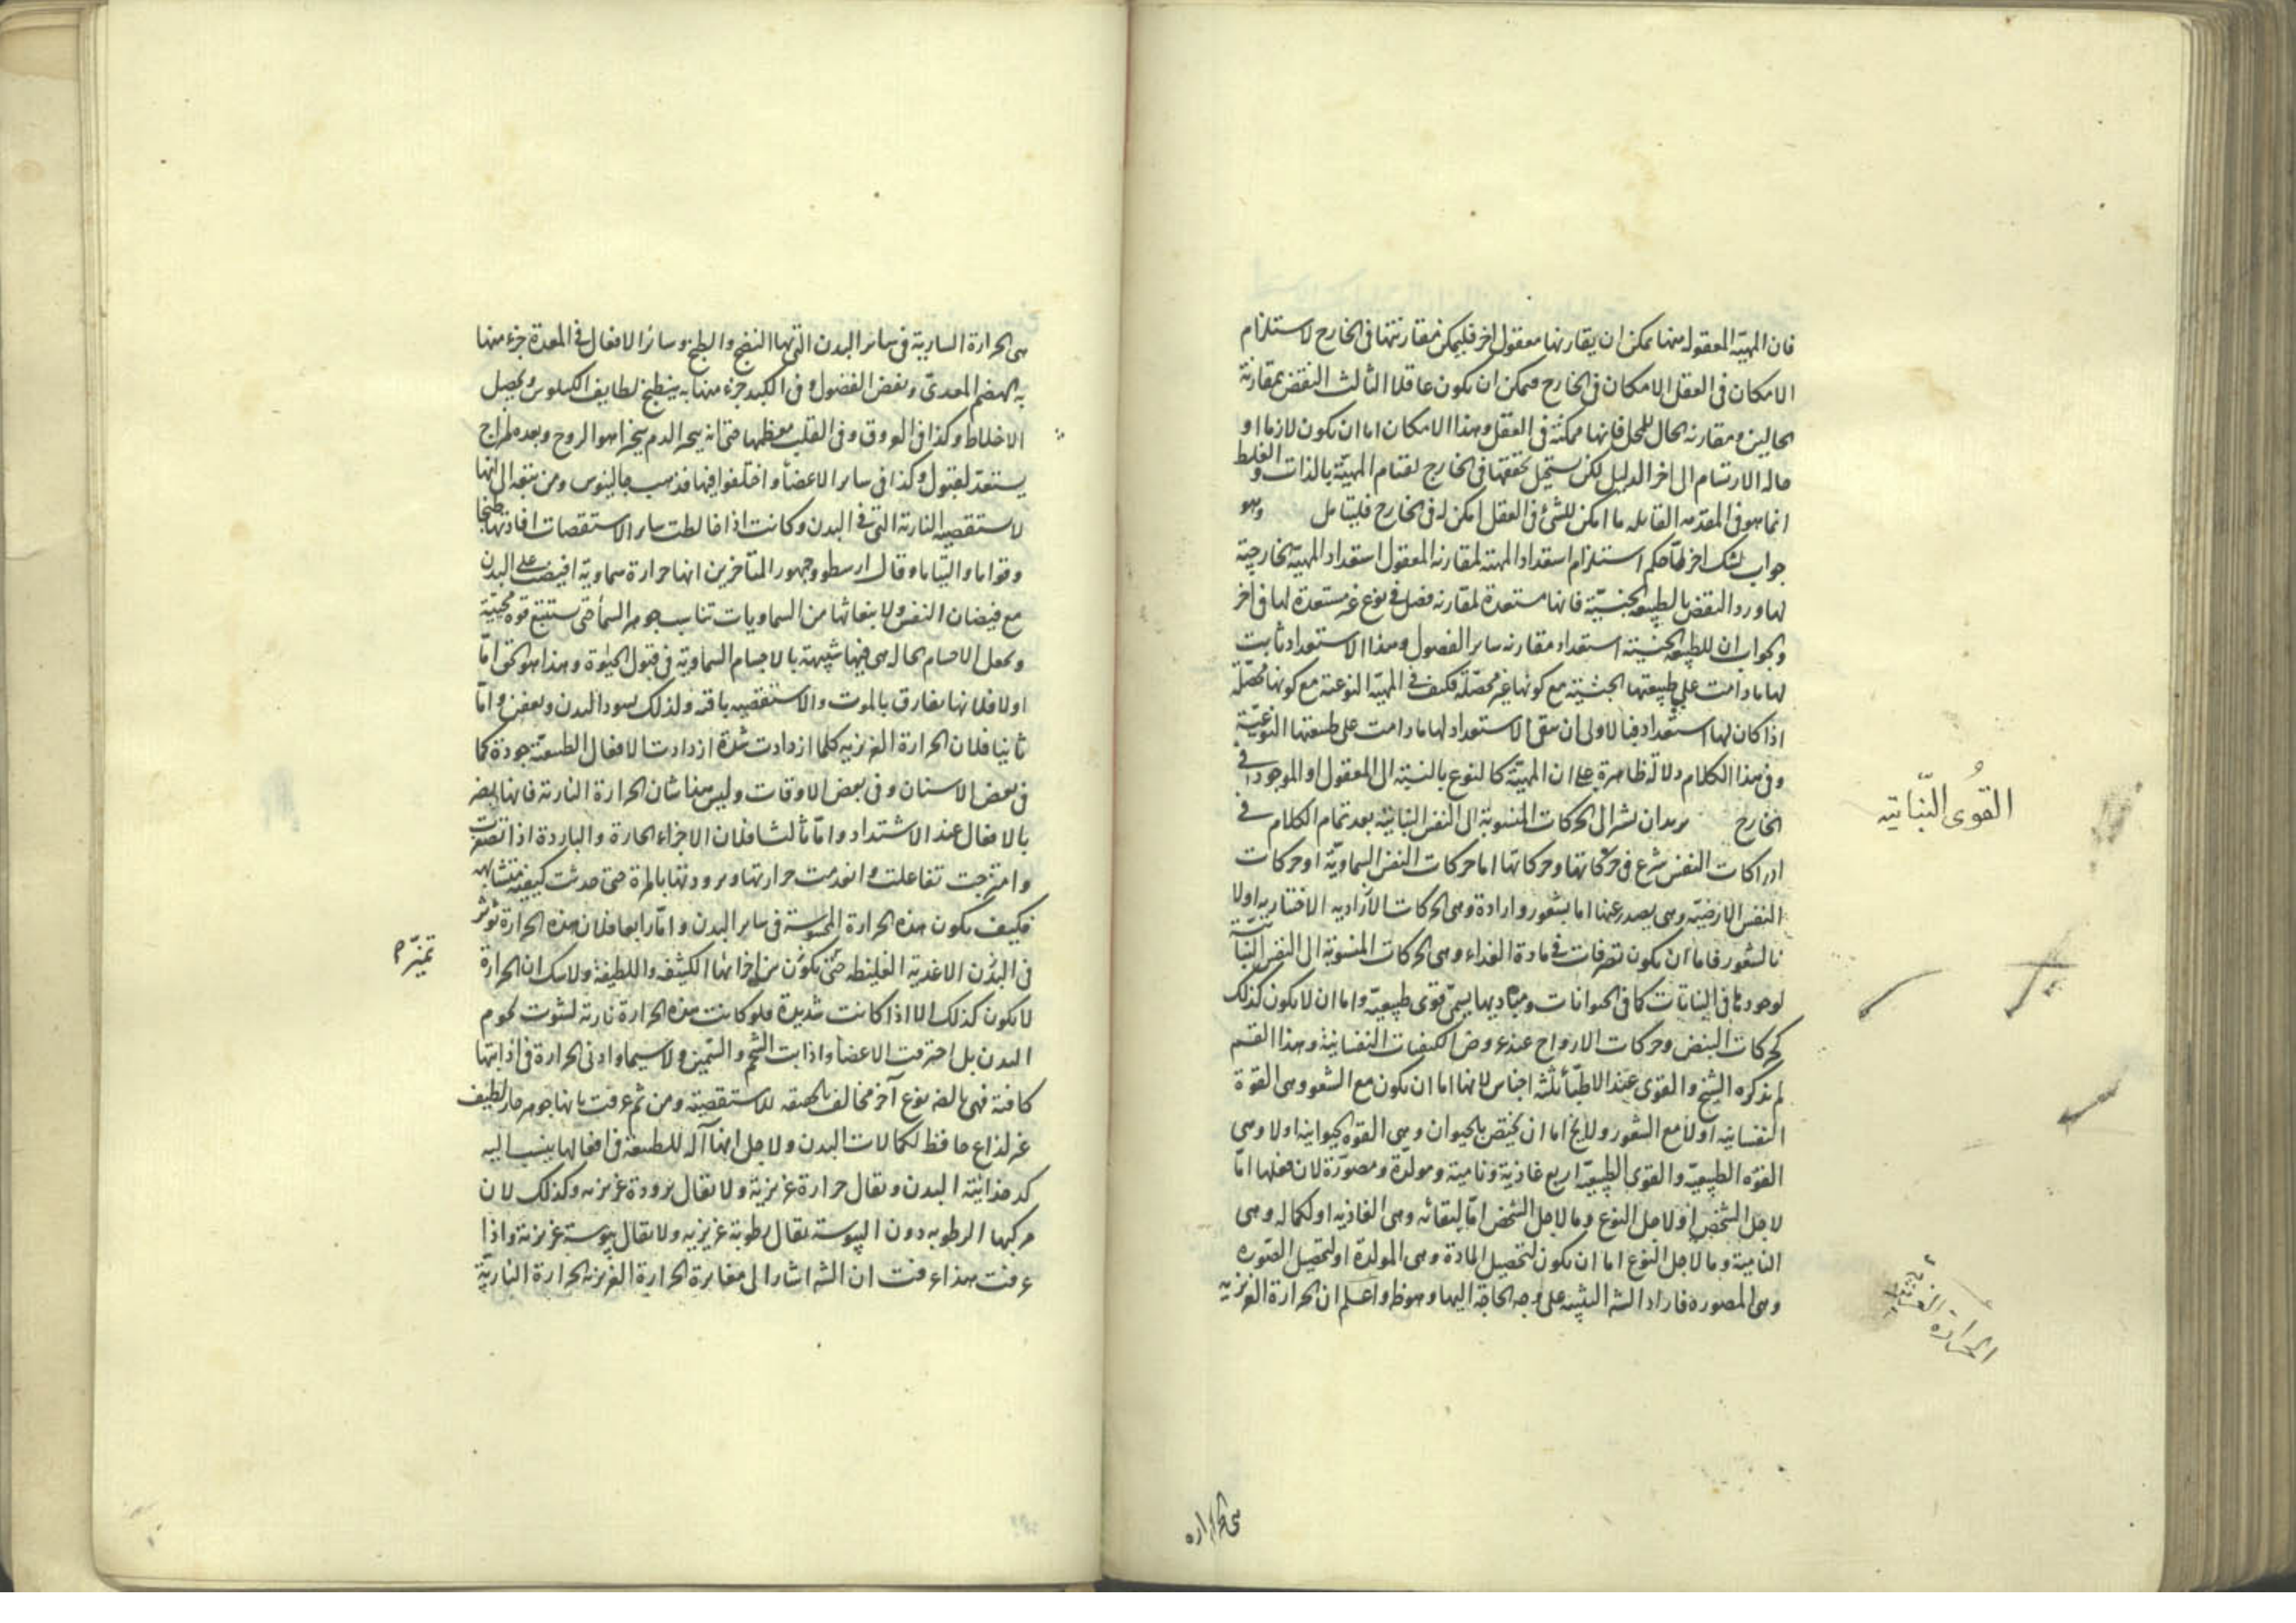 فان المهية المعقولة منها يمكن ان يقارنها معقول اخر فليمكن مقارنتها فى الخارج لاستلزام
الامكان فى العقل الامكان فى الخارج فيمكن ان يكون عاقلا الثالث النقض بمقارنة
الحالين ومقارنه الحال للمحل فانها ممكنة فى العقل وهذا الامكان اما ان يكون لازما او
حاله الارتسام الى اخر الدليل لكن يستحيل تحققها فى الخارج لقيام المهية بالذات والغلط
انما هو فى المقدمه القايله ما امكن للشئ فى العقل امكن له فى الخارج فليتامل وهو
جواب لشك اخر لما حكم استلزام استعداد المهية لمقارنه المعقول استعداد المهية الخارجية
لها ورد النقض بالطبيعة الجنسية فانها مستعدة لمقارنه فصل فى نوع غير مستعدة لها فى اخر
والجواب ان للطبيعة الجنسية استعداد مقارنه ساير الفصول وهذا الاستعداد ثابت
لها ما دامت على طبيعتها الجنسية مع كونها غير محصلة فكيف فى المهية النوعية مع كونها محصلة
اذا كان لها استعداد فبالاولى ان يبقى الاستعداد لها ما دامت على طبيعتها النوعية
وفى هذا الكلام دلالة ظاهرة على ان المهية كالنوع بالنسبة الى المعقول والموجود فى
الخارج يريد ان يشير الى الحركات المنسوبة الى النفس النباتية بعد تمام الكلام فى
ادراكات النفس شرع فى تحريكاتها وحركاتها اما حركات النفس السماوية او حركات
النفس الارضية وهى يصدر عنها اما بشعور وارادة وهى الحركات الارادية الاختياريه اولا
بالشعور فاما ان يكون تصرفات فى مادة الغذاء وهى الحركات المنسوبة الى النفس النباتية
لوجودها فى النباتات كما فى الحيوانات ومباديها يسمى قوى طبيعية واما ان لا يكون كذلك
كحركات النبض وحركات الارواح عند عروض الكيفيات النفسانية وهذا القسم
لم يذكره الشيخ والقوى عند الاطباء ثلثة اجناس لانها اما ان يكون مع الشعور وهى القوة
النفسانية اولا مع الشعور ولا يخ اما ان يختص بالحيوان وهى القوة الحيوانية اولا وهى
القوه الطبيعية والقوى الطبيعية اربع غاذية ونامية ومولدة ومصورة لان فعلها اما
لاجل الشخص او لاجل النوع وما لاجل الشخص اما لبقائه وهى الغاذيه او لكماله وهى
النامية وما لاجل النوع اما ان يكون لتحصيل المادة وهى المولدة او لتحصيل الصوره
وهى المصوره فاراد الشيخ التنبيه على وجه الحاجة اليها وهو ظ واعلم ان الحرارة الغريزية
القُوى النّباتيه
الحرارة الغريزية
هى الحرارة
هى الحرارة السارية فى سائر البدن التى بها النضج والطبخ وسائر الافعال فى المعدة جزء منها
به الهضم المعدى ونفض الفضول وفى الكبد جزء منها به ينطبخ لطايف الكيلوس ويحصل
الاخلاط وكذا فى العروق وفى القلب معظمها حتى انه يبخر الدم بخرا هو الروح وبعده لمزاج
يستعد لقبول وكذا فى ساير الاعضاء واختلفوا فيها فذهب جالينوس ومن تبعه الى انها
الاستقصيه النارية التى فى البدن وكانت اذا خالطت ساير الاستقصات افادتها طبخا
وقواما والتياما وقال ارسطو وجمهور المتاخرين انها حرارة سماوية افيضت على البدن
مع فيضان النفس ولانبعاثها من السماويات تناسب جوهر السماء حتى يستتبع قوة محيية
وتجعل الاجسام الحال هى فيها شبيهة بالاجسام السماوية فى قبول الحيوة وهذا هو الحق اما
اولا فلانها يفارق بالموت والاستقصيه باقية ولذلك يسود البدن ويعفن واما
ثانيا فلان الحرارة الغريزيه كلما ازدادت شدة ازدادت الافعال الطبيعية جودة كما
فى بعض الاسنان وفى بعض الاوقات وليس هذا شان الحرارة النارية فانها يضر
بالافعال عند الاشتداد واما ثالثا فلان الاجزاء الحارة والباردة اذا تصغرت
وامتزجت تفاعلت وانعدمت حرارتها وبرودتها بالمرة حتى حدثت كيفية متشابهة
فكيف يكون هذه الحرارة المحسوسة فى ساير البدن واما رابعا فلان هذه الحرارة تؤثر
فى البدن الاغذية الغليظه حتى يكون من اجزائها الكثيفه واللطيفة ولا شك ان الحرارة
تميز م
لا يكون كذلك الا اذا كانت شديدة فلو كانت هذه الحرارة نارية لشوت لحوم
البدن بل احترقت الاعضاء واذابت الشحم والسمين ولا سيما وادنى الحرارة فى اذابتها
كافية فهى بالضرورة نوع آخر مخالف بالحقيقه للاستقصية ومن ثم عرفت بانها جوهر حار لطيف
غير لذاع حافظ لكمالات البدن ولاجل انها آله للطبيعة فى افعالها ينسب اليه
كدخدائية البدن ويقال حرارة غريزية ولا يقال برودة غريزيه وكذلك لان
مركبها الرطوبه دون اليبوسة يقال رطوبة غريزيه ولا يقال يبوسة غريزية واذا
عرفت هذا عرفت ان الشيخ اشار الى مغايرة الحرارة الغريزية الحرارة النارية